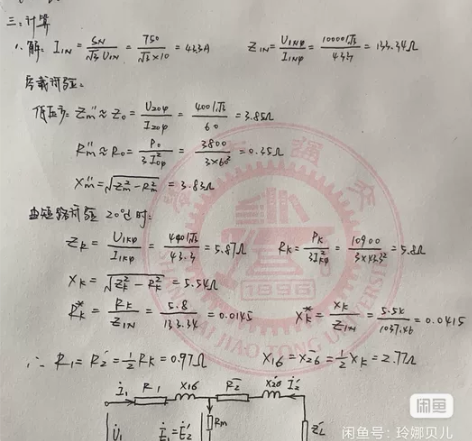 三、计算
1. 解: I₁N = SN/(√3 U₁N) = 750/(√3×10) = 43.3A    Z₁N = U₁Nφ/I₁Nφ = 10000/√3/43.3 = 133.34Ω
空载试验:
低压方: Zm″≈Z₀ = U₂₀φ/I₂₀φ = 400/√3/60 = 3.85Ω
Rm″≈R₀ = P₀/3I²₀φ = 3800/3×60² = 0.35Ω
Xm″ = √(Zm²-Rm²) = 3.83Ω
由短路试验 20℃时:
ZK = U₁Kφ/I₁Kφ = 440/√3/43.3 = 5.87Ω    RK = PK/3I²Kφ = 10900/3×43.3² = 5.8Ω
XK = √(ZK²-RK²) = 5.54Ω
RK* = RK/Z₁N = 5.8/133.34 = 0.0145    XK* = XK/Z₁N = 5.54/ = 0.0415
∴ R₁ = R₂′ = ½RK = 0.97Ω    X₁б = X₂б′ = ½XK = 2.77Ω
İ₁ R₁ X₁б R₂′ X₂б′ İ₂′
U̇₁ Ė₁=Ė₂′ Rm ZL′
SHANGHAI JIAO TONG UNIVERSITY
1896
闲鱼
闲鱼号：玲娜贝儿